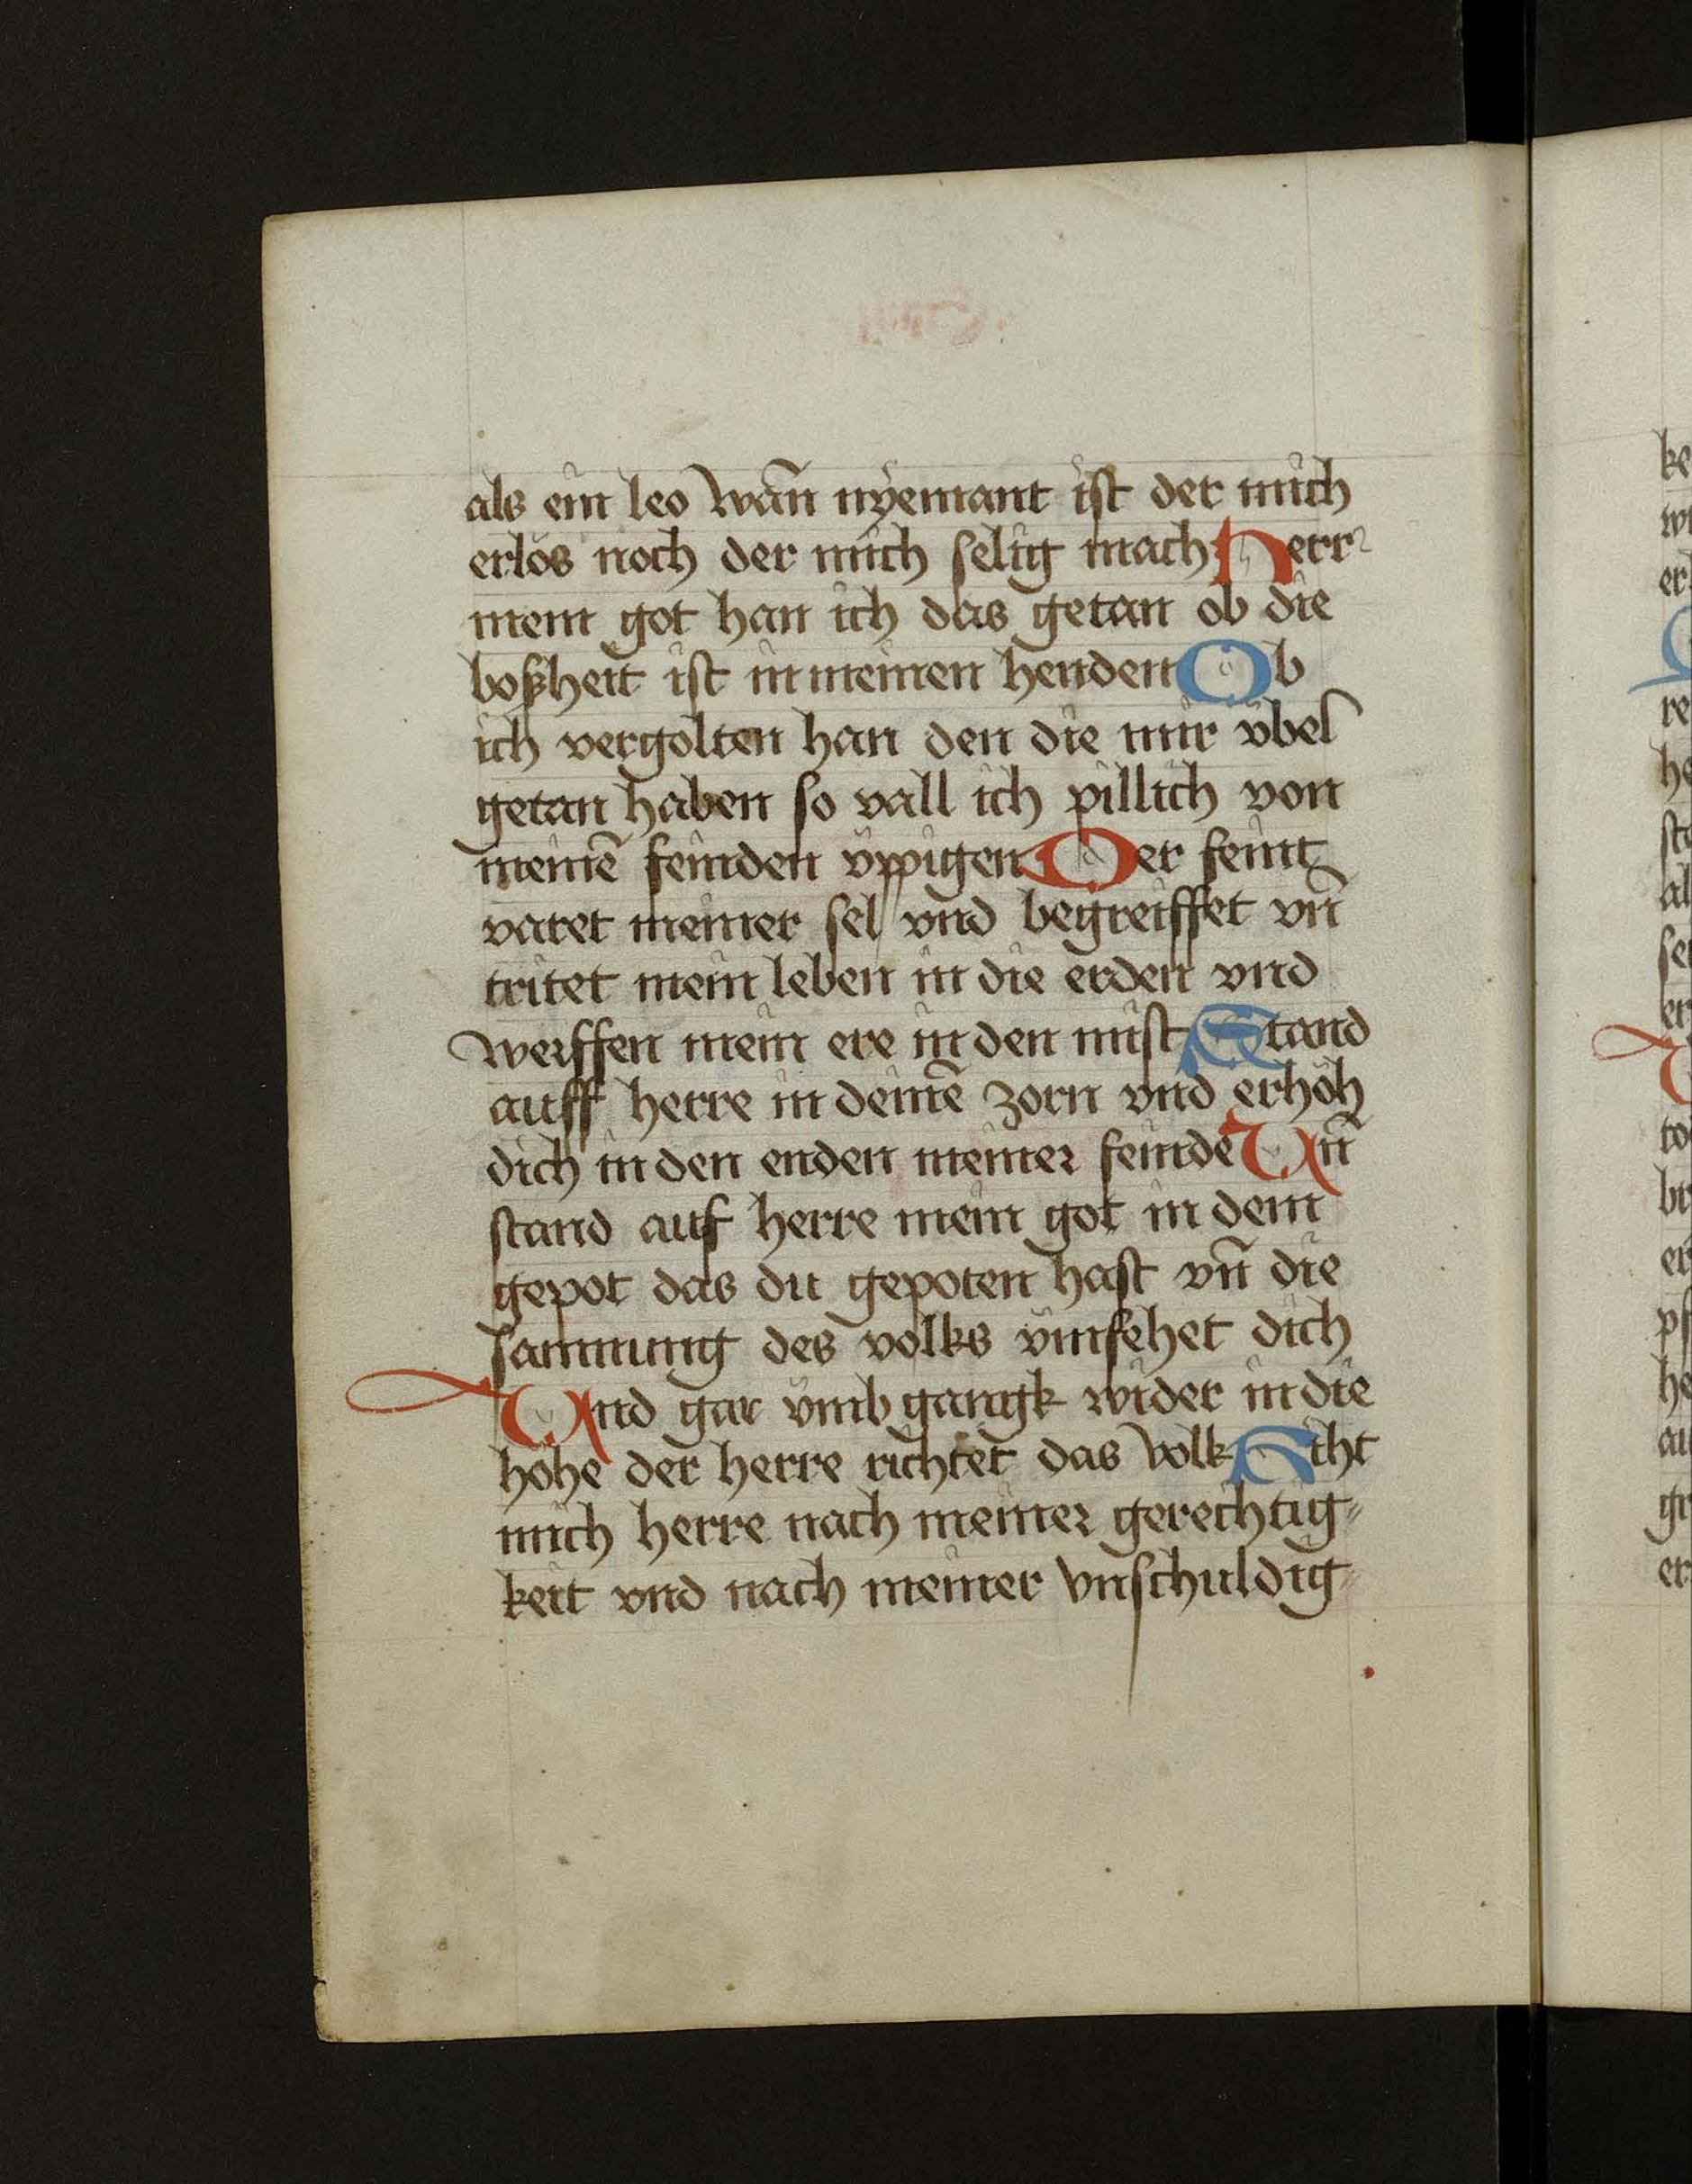 als ein leo wañ nyemant ist der mich
erlös noch der mich selig mach Herr
mein got han ich das getan ob die
boßheit ist in meinen henden Ob
ich vergolten han den die mir vbel
getan haben so vall ich pillich von
meinē feinden vppigen Der feint
varet meiner sel vnd begreiffet vn̄
tritet mein leben in die erden vnd
werffen mein ere in den mist Stand
auff herre in deinē zorn vnd erhöh
dich in den enden meiner feinde Vn̄
stand auf herre mein got in dem
gepot das du gepoten hast vn̄ die
sammung des volks vmfehet dich
Vnd gar vmb gangk wider in die
höhe der herre richtet das volk Riht
mich herre nach meiner gerechtig⸗
keit vnd nach meiner vnschuldig⸗